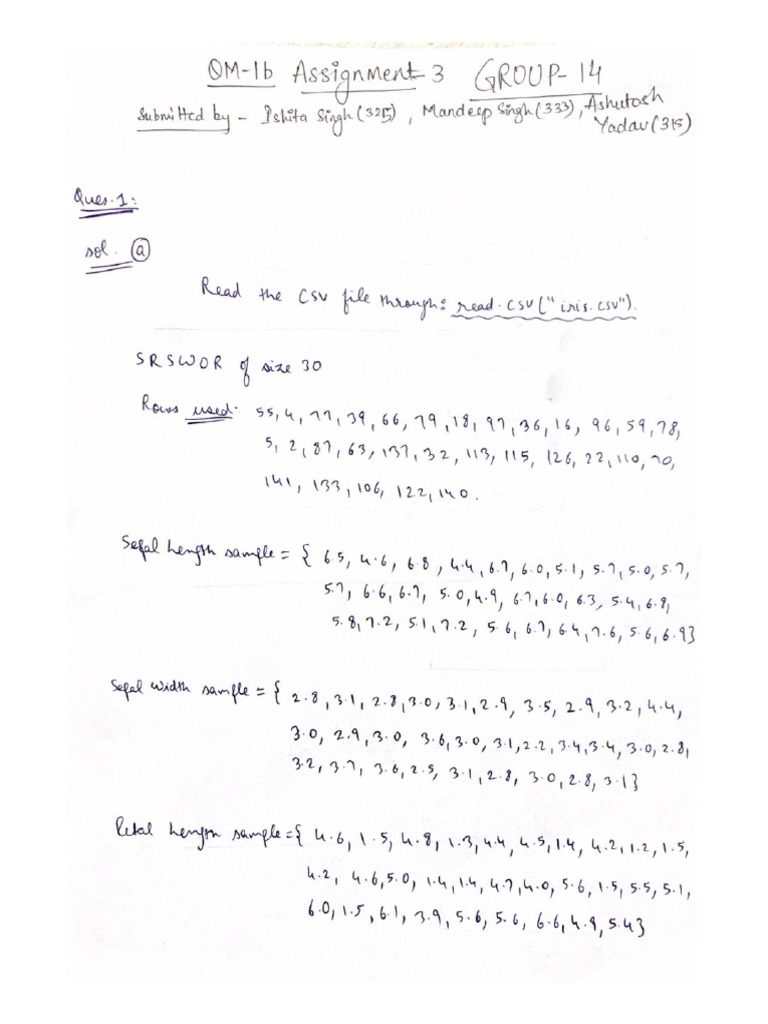 QM-1b Assignment 3 GROUP-14
Submitted by - Ishita Singh (325), Mandeep Singh (333), Ashutosh
Yadav (315)
Ques.1:
sol. (a)
Read the CSV file through: read.csv("iris.csv").
SRSWOR of size 30
Rows used: 55, 4, 77, 39, 66, 79, 18, 97, 36, 16, 96, 59, 78,
5, 2, 87, 63, 137, 32, 113, 115, 126, 22, 110, 70,
141, 133, 106, 122, 140.
Sepal Length sample = { 6.5, 4.6, 6.8, 4.4, 6.7, 6.0, 5.1, 5.7, 5.0, 5.7,
5.7, 6.6, 6.7, 5.0, 4.9, 6.7, 6.0, 6.3, 5.4, 6.8,
5.8, 7.2, 5.1, 7.2, 5.6, 6.7, 6.4, 7.6, 5.6, 6.9}
Sepal width sample = { 2.8, 3.1, 2.8, 3.0, 3.1, 2.9, 3.5, 2.9, 3.2, 4.4,
3.0, 2.9, 3.0, 3.6, 3.0, 3.1, 2.2, 3.4, 3.4, 3.0, 2.8,
3.2, 3.7, 3.6, 2.5, 3.1, 2.8, 3.0, 2.8, 3.1}
Petal Length sample = { 4.6, 1.5, 4.8, 1.3, 4.4, 4.5, 1.4, 4.2, 1.2, 1.5,
4.2, 4.6, 5.0, 1.4, 1.4, 4.7, 4.0, 5.6, 1.5, 5.5, 5.1,
6.0, 1.5, 6.1, 3.9, 5.6, 5.6, 6.6, 4.9, 5.4}